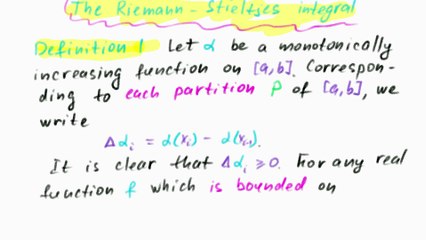 The Riemann-Stieltjes integral
Definition 1 Let α be a monotonically
increasing function on [a,b]. Correspon-
ding to each partition P of [a,b], we
write
Δαᵢ = α(xᵢ) - α(xᵢ₋₁).
It is clear that Δαᵢ ⩾ 0. For any real
function f which is bounded on